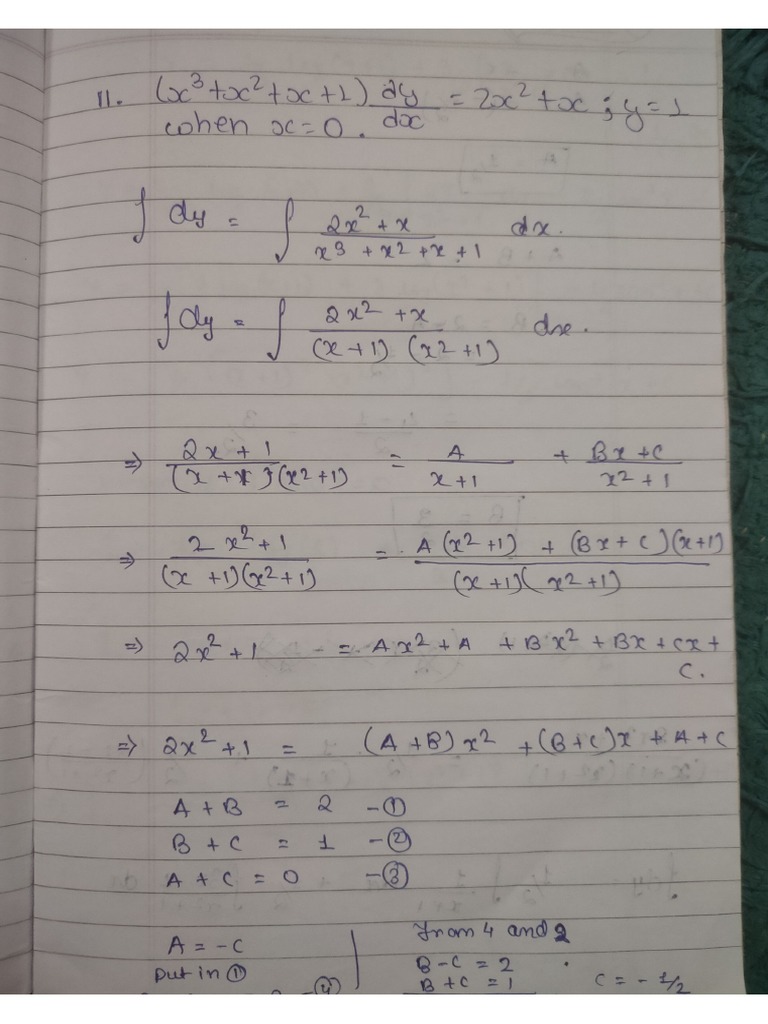 11. (x³+x²+x+1) dy/dx = 2x²+x ; y=1
when x=0.
∫ dy = ∫ (2x² + x)/(x3 + x2 + x + 1) dx.
∫ dy = ∫ (2x² + x)/((x+1) (x2+1)) dx.
⇒ (2x + 1)/((x + 1)(x2+1)) = A/(x+1) + (Bx + C)/(x2 + 1)
⇒ (2x²+1)/((x+1)(x2+1)) = (A(x2+1) + (Bx+C)(x+1))/((x+1)(x2+1))
⇒ 2x²+1 = Ax2+A + Bx2 + Bx + cx +
C.
⇒ 2x²+1 = (A+B)x2 + (B+C)x + A+C
A + B = 2 -①
B + C = 1 -②
A + C = 0 -③
A = -C
Put in ①
From 4 and 2
B-C = 2
B+C = 1
C = - 1/2
-④